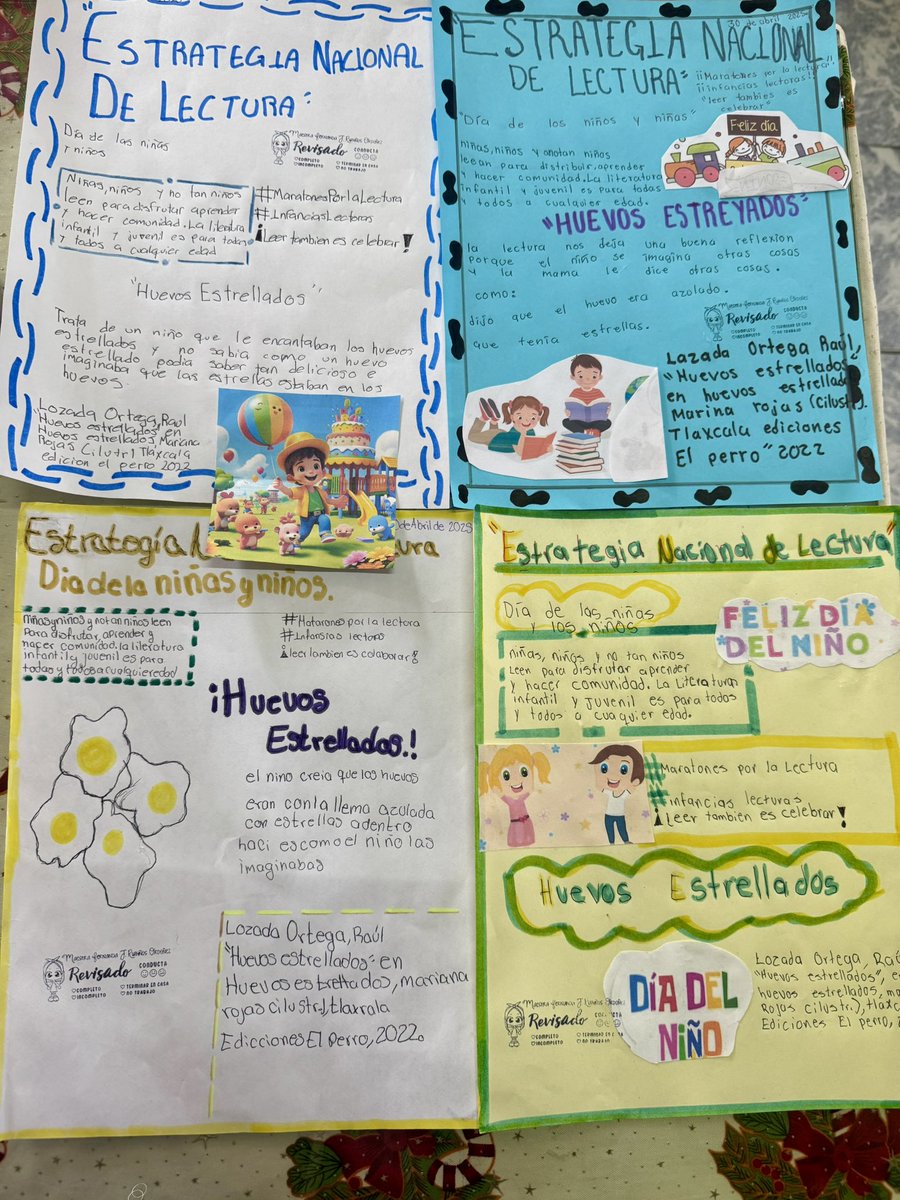 "ESTRATEGIA NACIONAL
DE LECTURA"
Día de las niñas
y niños
Maestra
Revisado
CONDUCTA
COMPLETO
INCOMPLETO
TERMINAR EN CASA
NO TRABAJO
Niñas, niños y no tan niños
leen para disfrutar aprender
y hacer comunidad. La litetatura
infantil y juvenil es para todas
y todos a cualquier edad
#MaratonesPorlaLectura
#InfanciasLectoras
¡Leer tambien es celebrar!
"Huevos Estrellados"
Trata de un niño que le encantaban los huevos
estrellados y no sabia como un huevo
estrellado podia saber tan delicioso e
imaginaba que las estrellas estaban en los
huevos.
"Lozada Ortega, Raúl
Huevos estrellados en
Huevos estrellados, Mariana
Rojas (ilustr) Tlaxcala
edicion el perro 2022
30 de abril 2025
"ESTRATEGIA NACIONAL
DE LECTURA"
¡¡Maratones por la lectura!!
¡¡infancias lectoras!!
"leer tambies es
celebrar"
"Día de los niños y niñas"
Feliz día
niñas, niños y onotan niños
leean para distribuir, aprender
y hacer comunidad. La literatura
infantil y juvenil es para todas
y todos a cualquier edad.
"HUEVOS ESTREYADOS"
la lectura nos deja una buena reflexion
porque el niño se imagina otras cosas
y la mama le dice otras cosas.
como:
dijo que el huevo era azolado.
que tenía estrellas.
Maestra
Revisado
CONDUCTA
COMPLETO
INCOMPLETO
TERMINAR EN CASA
NO TRABAJO
Lazada Ortega Raúl,
"Huevos estrellados
en huevos estrellad
Marina rojas (Cilustr).
Tlaxcala ediciones
El perro" 2022
de Abril de 2025
Estratogía
ura
Dia de la niñas y niños.
niñas y ninos y notan niños leen
Para disfrutar, aprender y
hacer comunidad. La literatura
infantil a juvenil es para
todas y todos a cualquier edad
#Matarones por la lectura
#Infansias lectoras
¡leer lambien es colaborar!
¡Huevos
Estrellados.!
el nino creia que los huevos
eran con la llema azulada
con estrellas adentro
haci es como el niño las
imaginabas
Maestra
Revisado
CONDUCTA
COMPLETO
INCOMPLETO
TERMINAR EN CASA
NO TRABAJO
Lozada Ortega, Raúl
"Huevos estrellados" en
Huevos estrellados, mariana
rojas cilustr), tlaxcala
Edicciones El Perro, 2022.
"Estrategia Nacional de Lectura"
Día de las niñas
y los niños
FELIZ DÍA
DEL NIÑO
niñas, niños y no tan niños
Leen para disfrutar aprender
y hacer comunidad. La Literatura
infantil y juvenil es para todas
y todos a cuaquier edad.
#Maratones por la Lectura
#infancias lecturas
¡Leer tambien es celebrar!
Huevos Estrellados
Maestra
Revisado
COMPLETO
INCOMPLETO
TERMINAR EN CASA
NO TRABAJO
DÍA DEL
NIÑO
Lozada Ortega, Raú
"Huevos estrellados", e
huevos estrellados, ma
Rojas cilustri), tlaxc
Ediciones El perro,